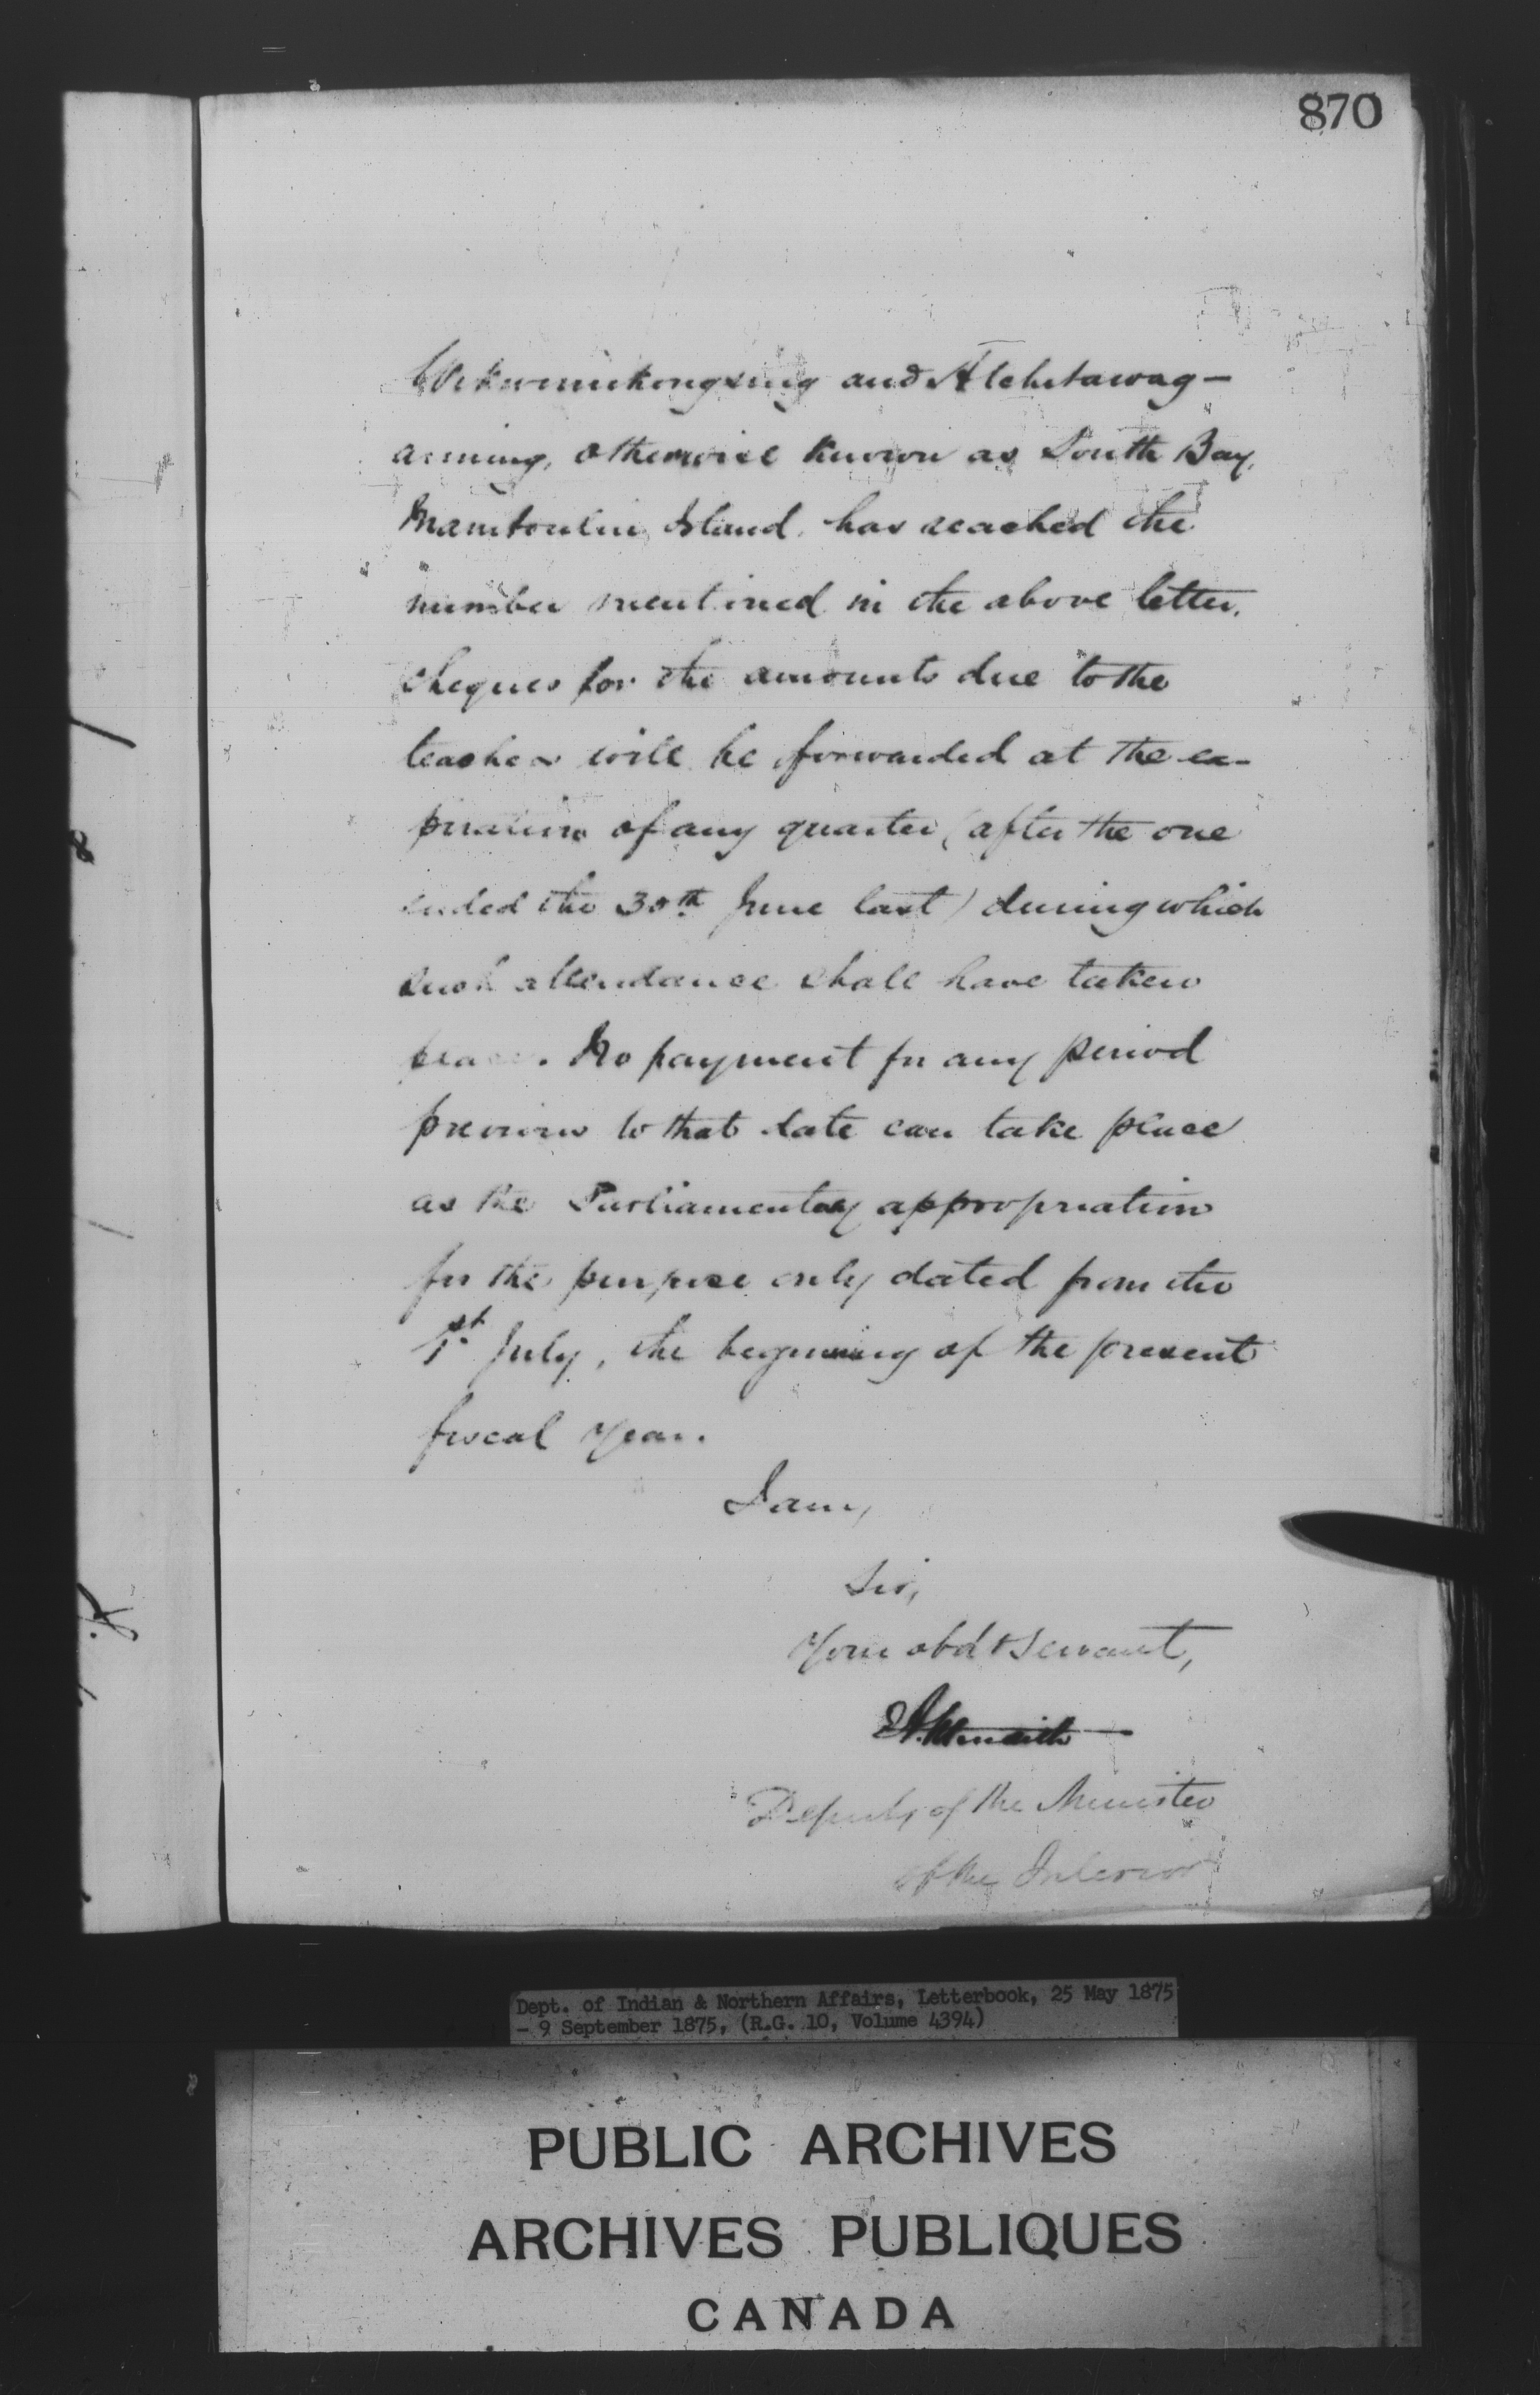 870
Wikwemikongsing and Atchitawag-
anning, otherwise known as South Bay,
Manitoulin Island, has reached the
number mentioned in the above letter,
cheques for the amounts due to the
teachers will be forwarded at the ex-
piration of any quarter (after the one
ended the 30th June last) during which
such attendance shall have taken
place. No payment for any period
previous to that date can take place
as the Parliamentary appropriation
for the purpose only dated from the
1st July, the beginning of the present
fiscal year.
I am,
Sir,
Your obdt Servant,
Deputy of the Minister
of the Interior
Dept. of Indian & Northern Affairs, Letterbook, 25 May 1875
- 9 September 1875, (R.G. 10, Volume 4394)
PUBLIC ARCHIVES
ARCHIVES PUBLIQUES
CANADA